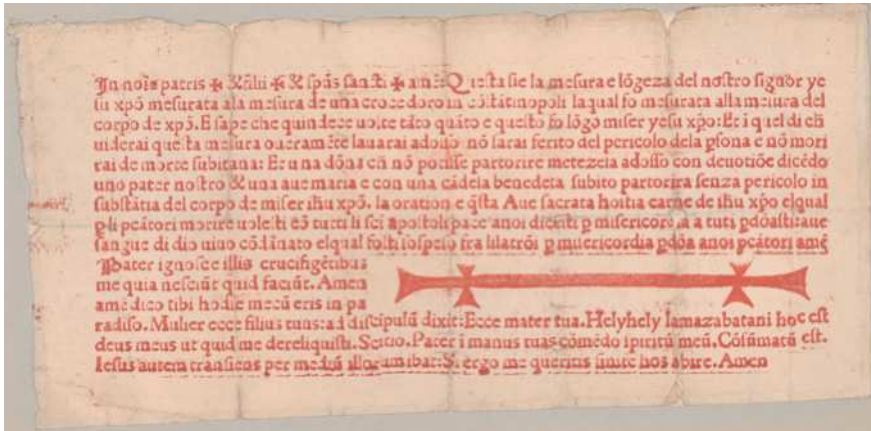 In noīe patris ✠ & filii ✠ & spūs sancti ✠ amē: Questa sie la mesura e lōgeza del nostro signor ye
su xpō mesurata ala mesura de una croce doro in cōstātinopoli la qual fo mesurata alla mesura del
corpo de xpō. E sape che quindece uolte tāto quāto e questo fo lōgo miser yesu xpo: Et i quel di ch
uiderai questa mesura oueramēte lauarai adosso nō sarai ferito del pericolo dela psona e nō mori
rai de morte subitana: Et una dōna ch nō potisse partorire metezela adosso con deuotiōe dicēdo
uno pater nostro & una aue maria e con una cādela benedeta subito partorira senza pericolo in
substātia del corpo de miser ihu xpō. la oration e q̄sta Aue sacrata hostia carne de ihu xpo elqual
p li pcātori morire uolesti cō tutti li sci apostoli pace anoi dicesti p misericordia a tuti pdōasti: aue
sangue di dio uiuo cōdānato elqual fosti sospeso fra li latrōi p misericordia pdōa anoi pcātori amē
Pater ignosce illis crucifigētibus
me quia nesciūt quid faciūt. Amen
amē dico tibi hodie mecū eris in pa
radiso. Mulier ecce filius tuus: ad discipulū dixit: Ecce mater tua. Helyhely lamazabatani hoc est
deus meus ut quid me dereliquisti. Scicio. Pater i manus tuas cōmēdo spiritū meū. Cōsūmatū est.
Iesus autem transiens per mediū illorum ibat: Si ergo me queritis sinite hos abire. Amen